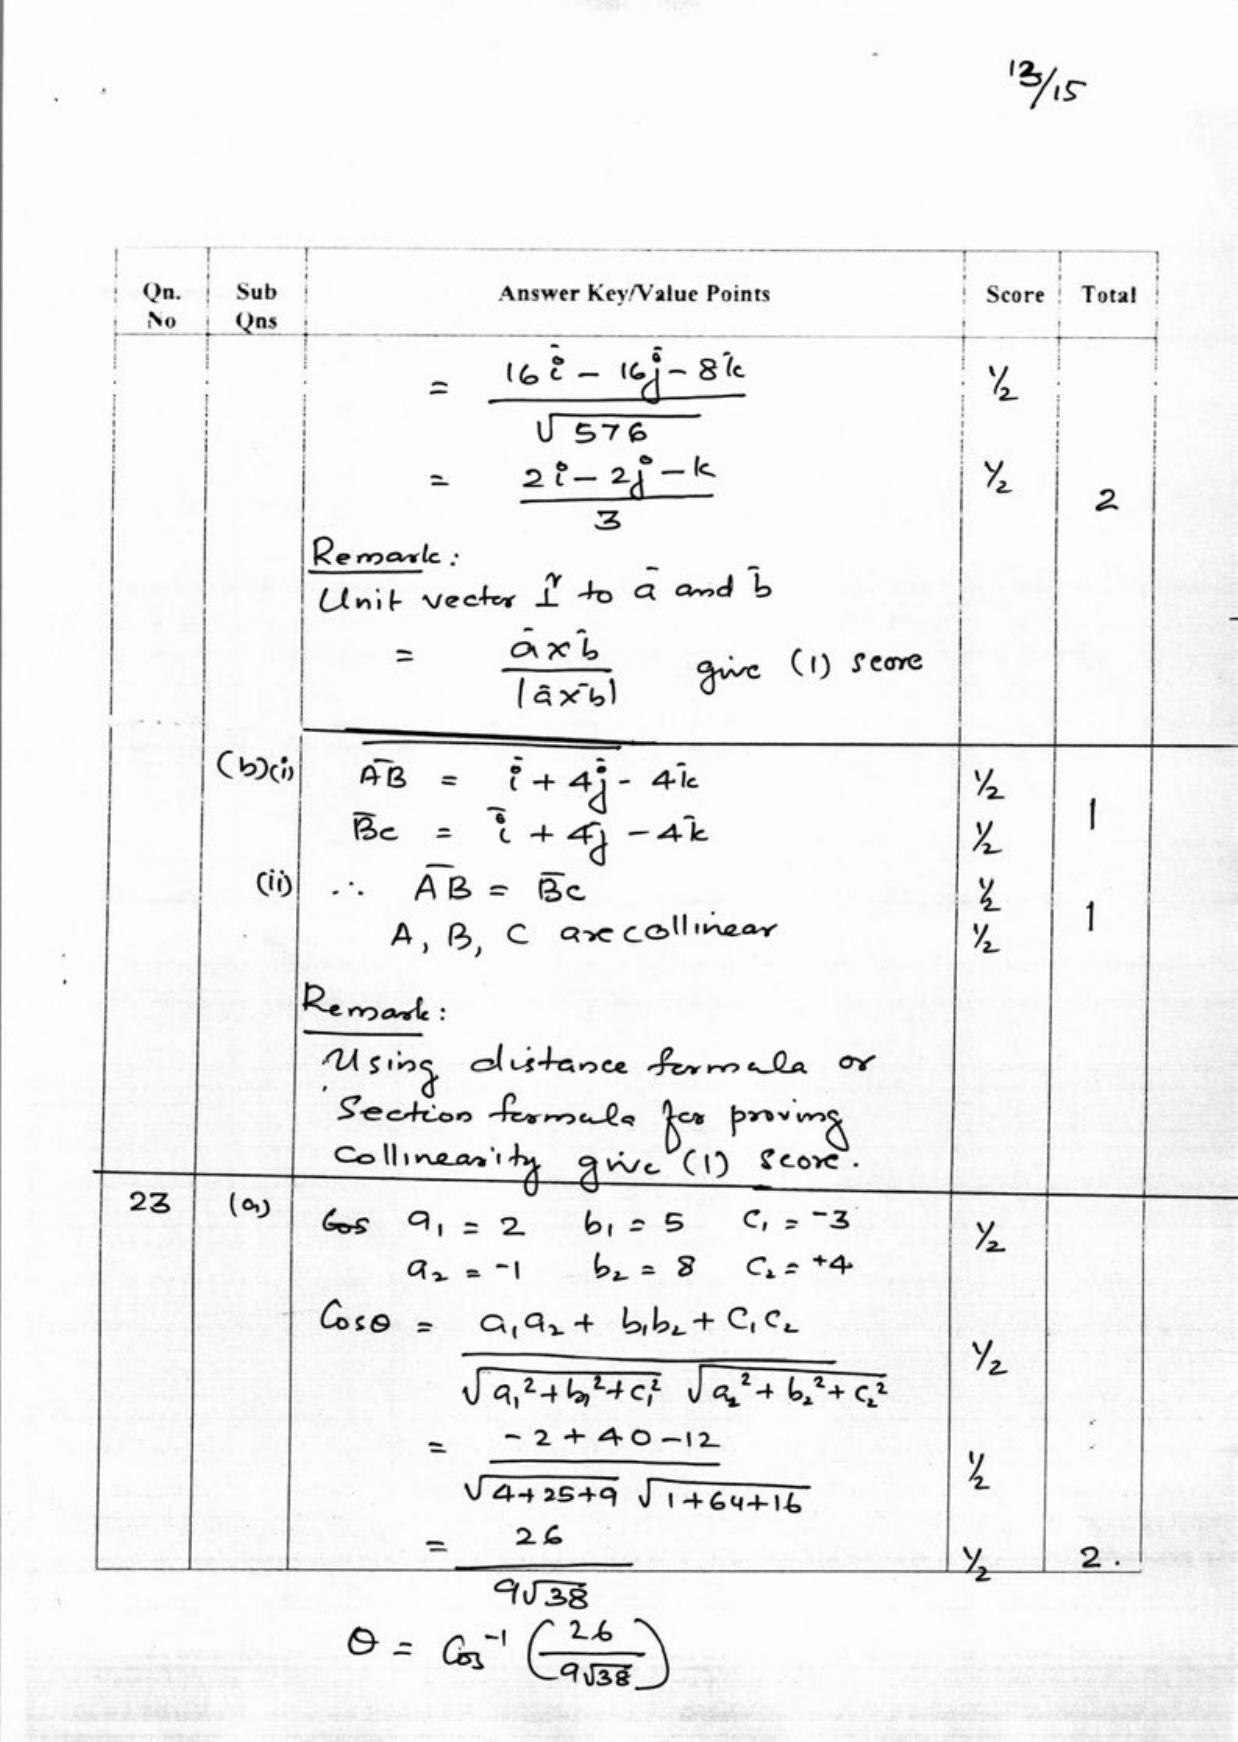 13/15
Qn. No Sub Qns Answer Key/Value Points Score Total
= (16î - 16ĵ - 8k̄) / √576 ½
= (2i - 2j - k) / 3 ½ 2
Remark:
Unit vector ⊥r to ā and b̄
= (ā × b̄) / |ā × b̄| give (1) score
(b)(i) A̅B̅ = i + 4j - 4k ½
B̅C = i + 4j - 4k ½ 1
(ii) ∴ A̅B̅ = B̅C ½
A, B, C are collinear ½ 1
Remark:
Using distance formula or
Section formula for proving
Collinearity give (1) score.
23 (a) Cos a₁ = 2 b₁ = 5 c₁ = -3 ½
a₂ = -1 b₂ = 8 c₂ = +4
Cosθ = (a₁a₂ + b₁b₂ + c₁c₂) / (√(a₁² + b₁² + c₁²) √(a₂² + b₂² + c₂²)) ½
= (-2 + 40 - 12) / (√(4+25+9) √(1+64+16)) ½
= 26 / (9√38) ½ 2.
θ = Cos⁻¹ (26 / (9√38))